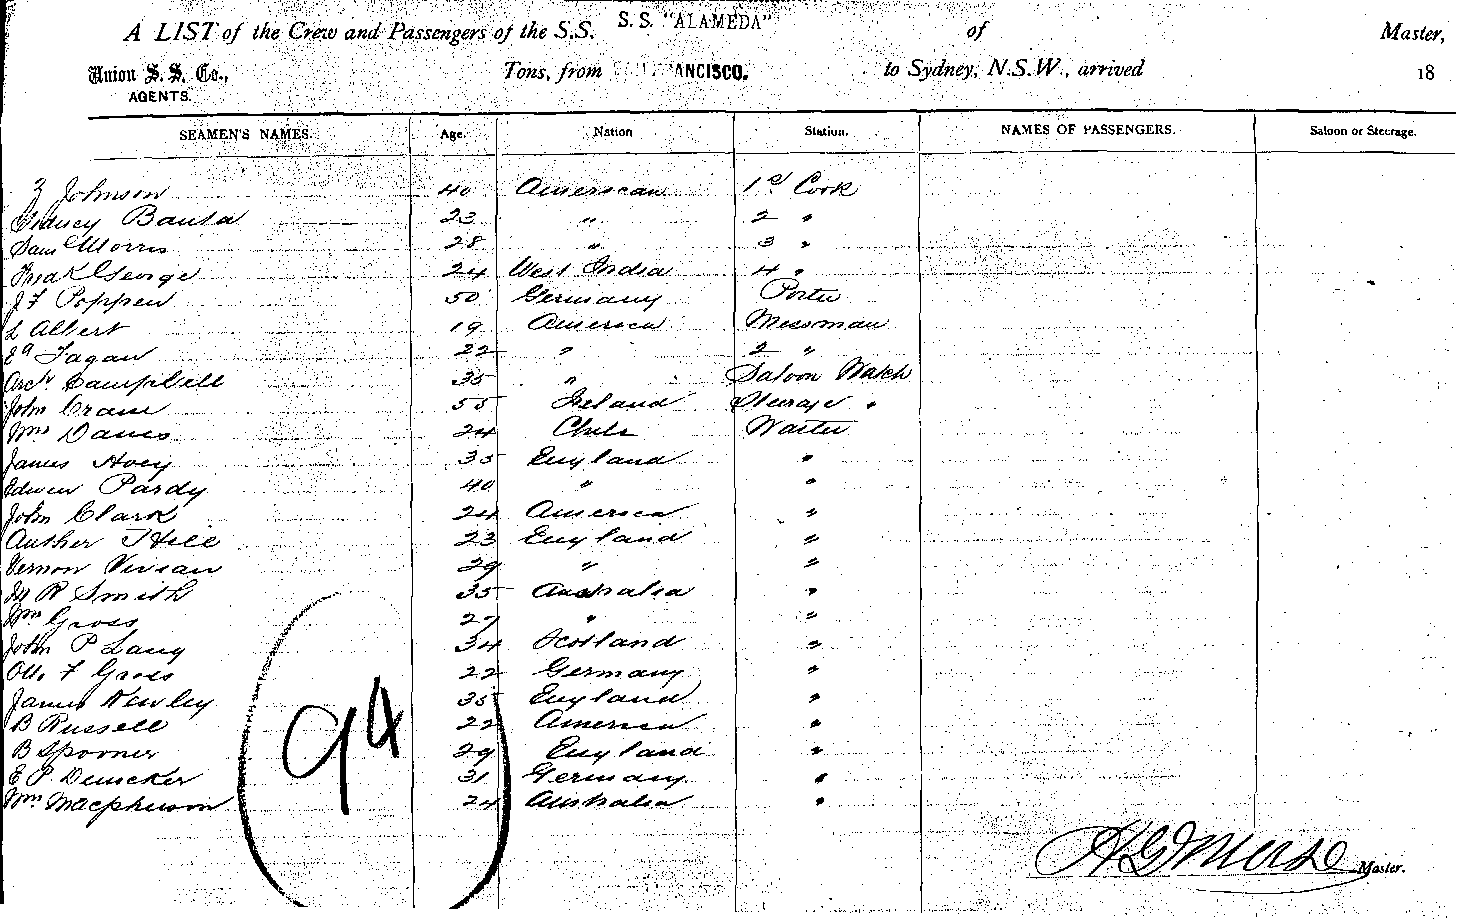 A LIST of the Crew and Passengers of the S.S. S.S. "ALAMEDA" of Master,
Union S. S. Co., Tons, from ANCISCO. to Sydney, N.S.W., arrived 18
AGENTS.
SEAMEN'S NAMES. Age. Nation Station. NAMES OF PASSENGERS. Saloon or Steerage.
Z Johnson 40 American 1st Cook
Sidney Banta 23 " 2 "
Sam Morris 28 " 3 "
Fredk George 24 West India 4 "
J F Poppen 50 Germany Porter
L Albert 19 America Messman
Ed Fagan 22 " 2 "
Arch Campbell 35 " Saloon Watch
John Crane 55 Ireland Steerage "
Wm Davis 24 Chile Waiter
James Hoey 35 England "
Edwin Pardy 40 " "
John Clark 24 America "
Auther Hill 23 England "
Vernon Vivian 29 " "
M R Smith 35 Australia "
Wm Gross 27 " "
John P Lang 34 Scotland "
Otto F Gross 22 Germany "
James Newley 35 England "
B Russell 22 America "
B Spooner 29 England "
E P Deucker 31 Germany "
Wm Macpherson 24 Australia "
94
H G Morse Master.